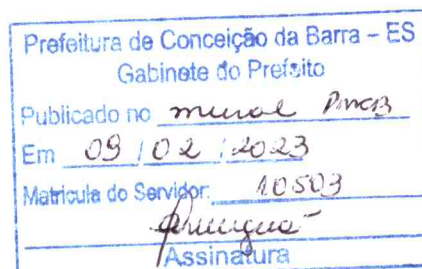 Prefeitura de Conceição da Barra – ES
Gabinete do Prefeito
Publicado no mural PMCB
Em 09 / 02 / 2023
Matricula do Servidor: 10503
Assinatura